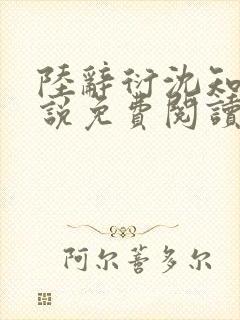 陸辭衍沈知
說免費閱讀
阿尔菩多尔